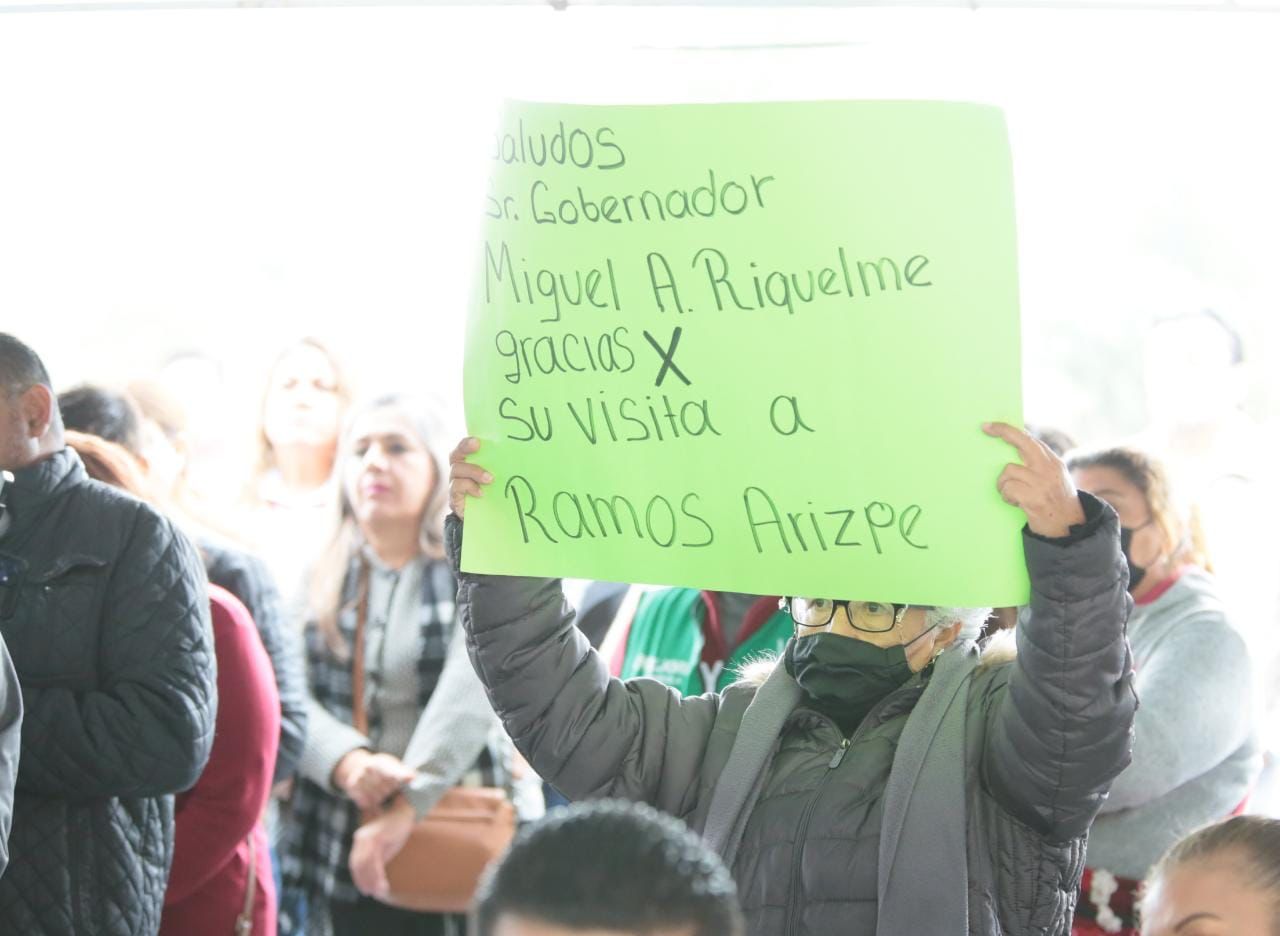 Saludos
Sr. Gobernador
Miguel A. Riquelme
gracias X
su visita a
Ramos Arizpe